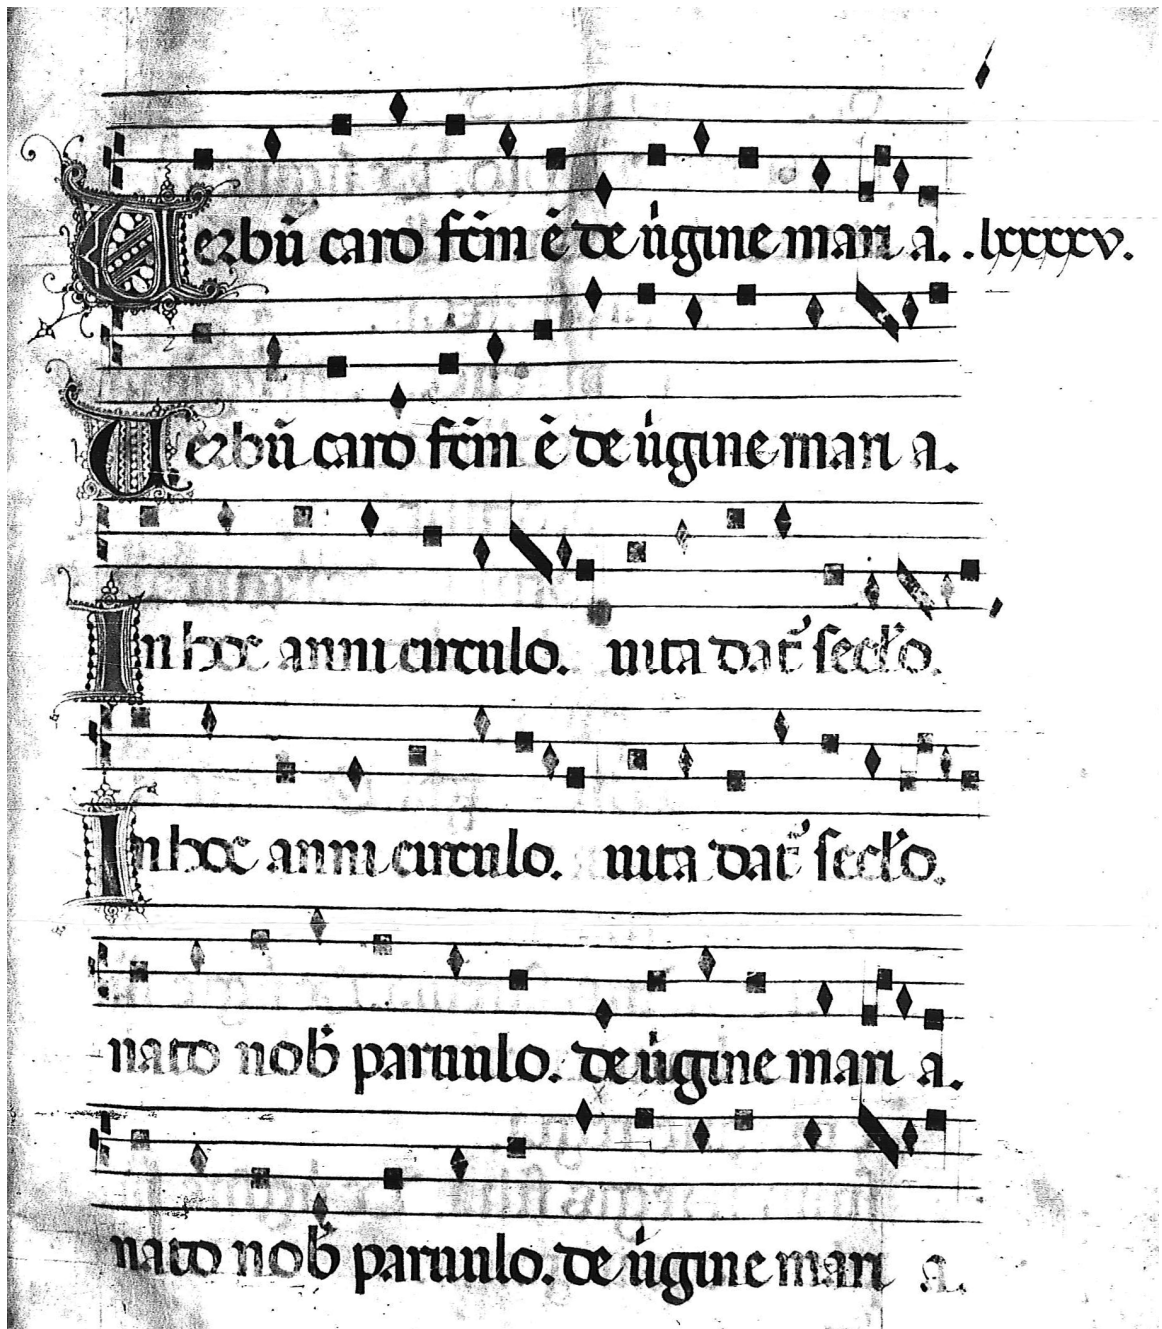 Verbū caro fcm̄ ē de ůgine mari a. .lxxxxv.
Verbū caro fcm̄ ē de ůgine mari a.
In hoc anni circulo. uita dat᷑ secl'o.
In hoc anni circulo. uita dat᷑ secl'o.
nato nob̾ paruulo. de ůgine mari a.
nato nob̾ paruulo. de ůgine mari a.